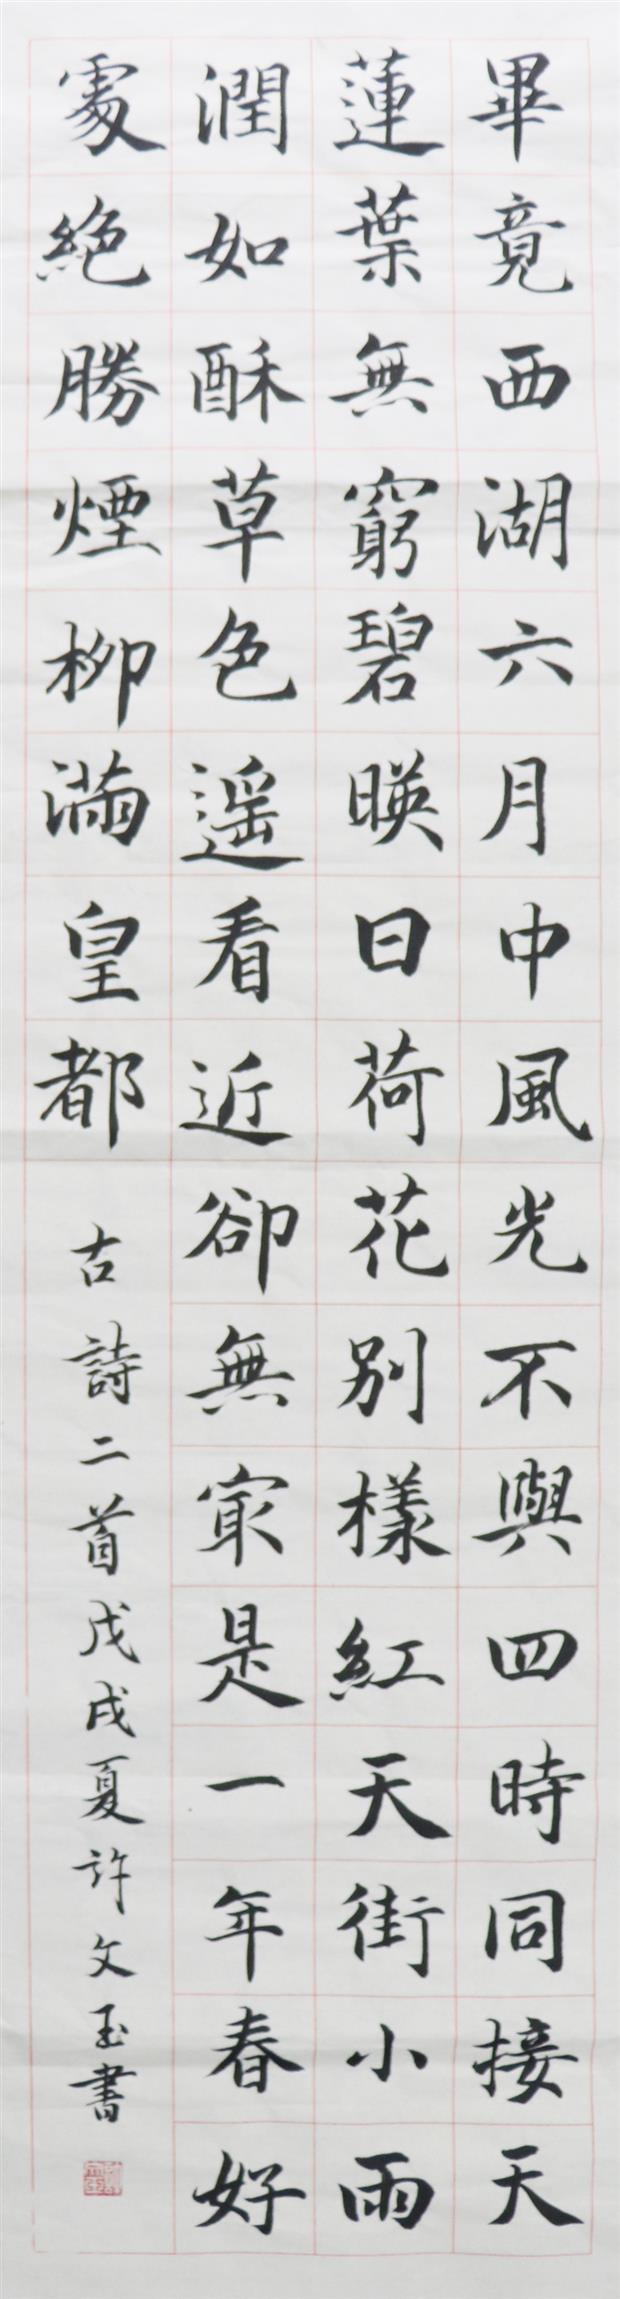 畢竟西湖六月中風光不與四時同接天
蓮葉無窮碧暎日荷花別樣紅天街小雨
潤如酥草色遥看近卻無㝡是一年春好
處絕勝煙柳滿皇都
古詩二首戊戌夏许文玉書